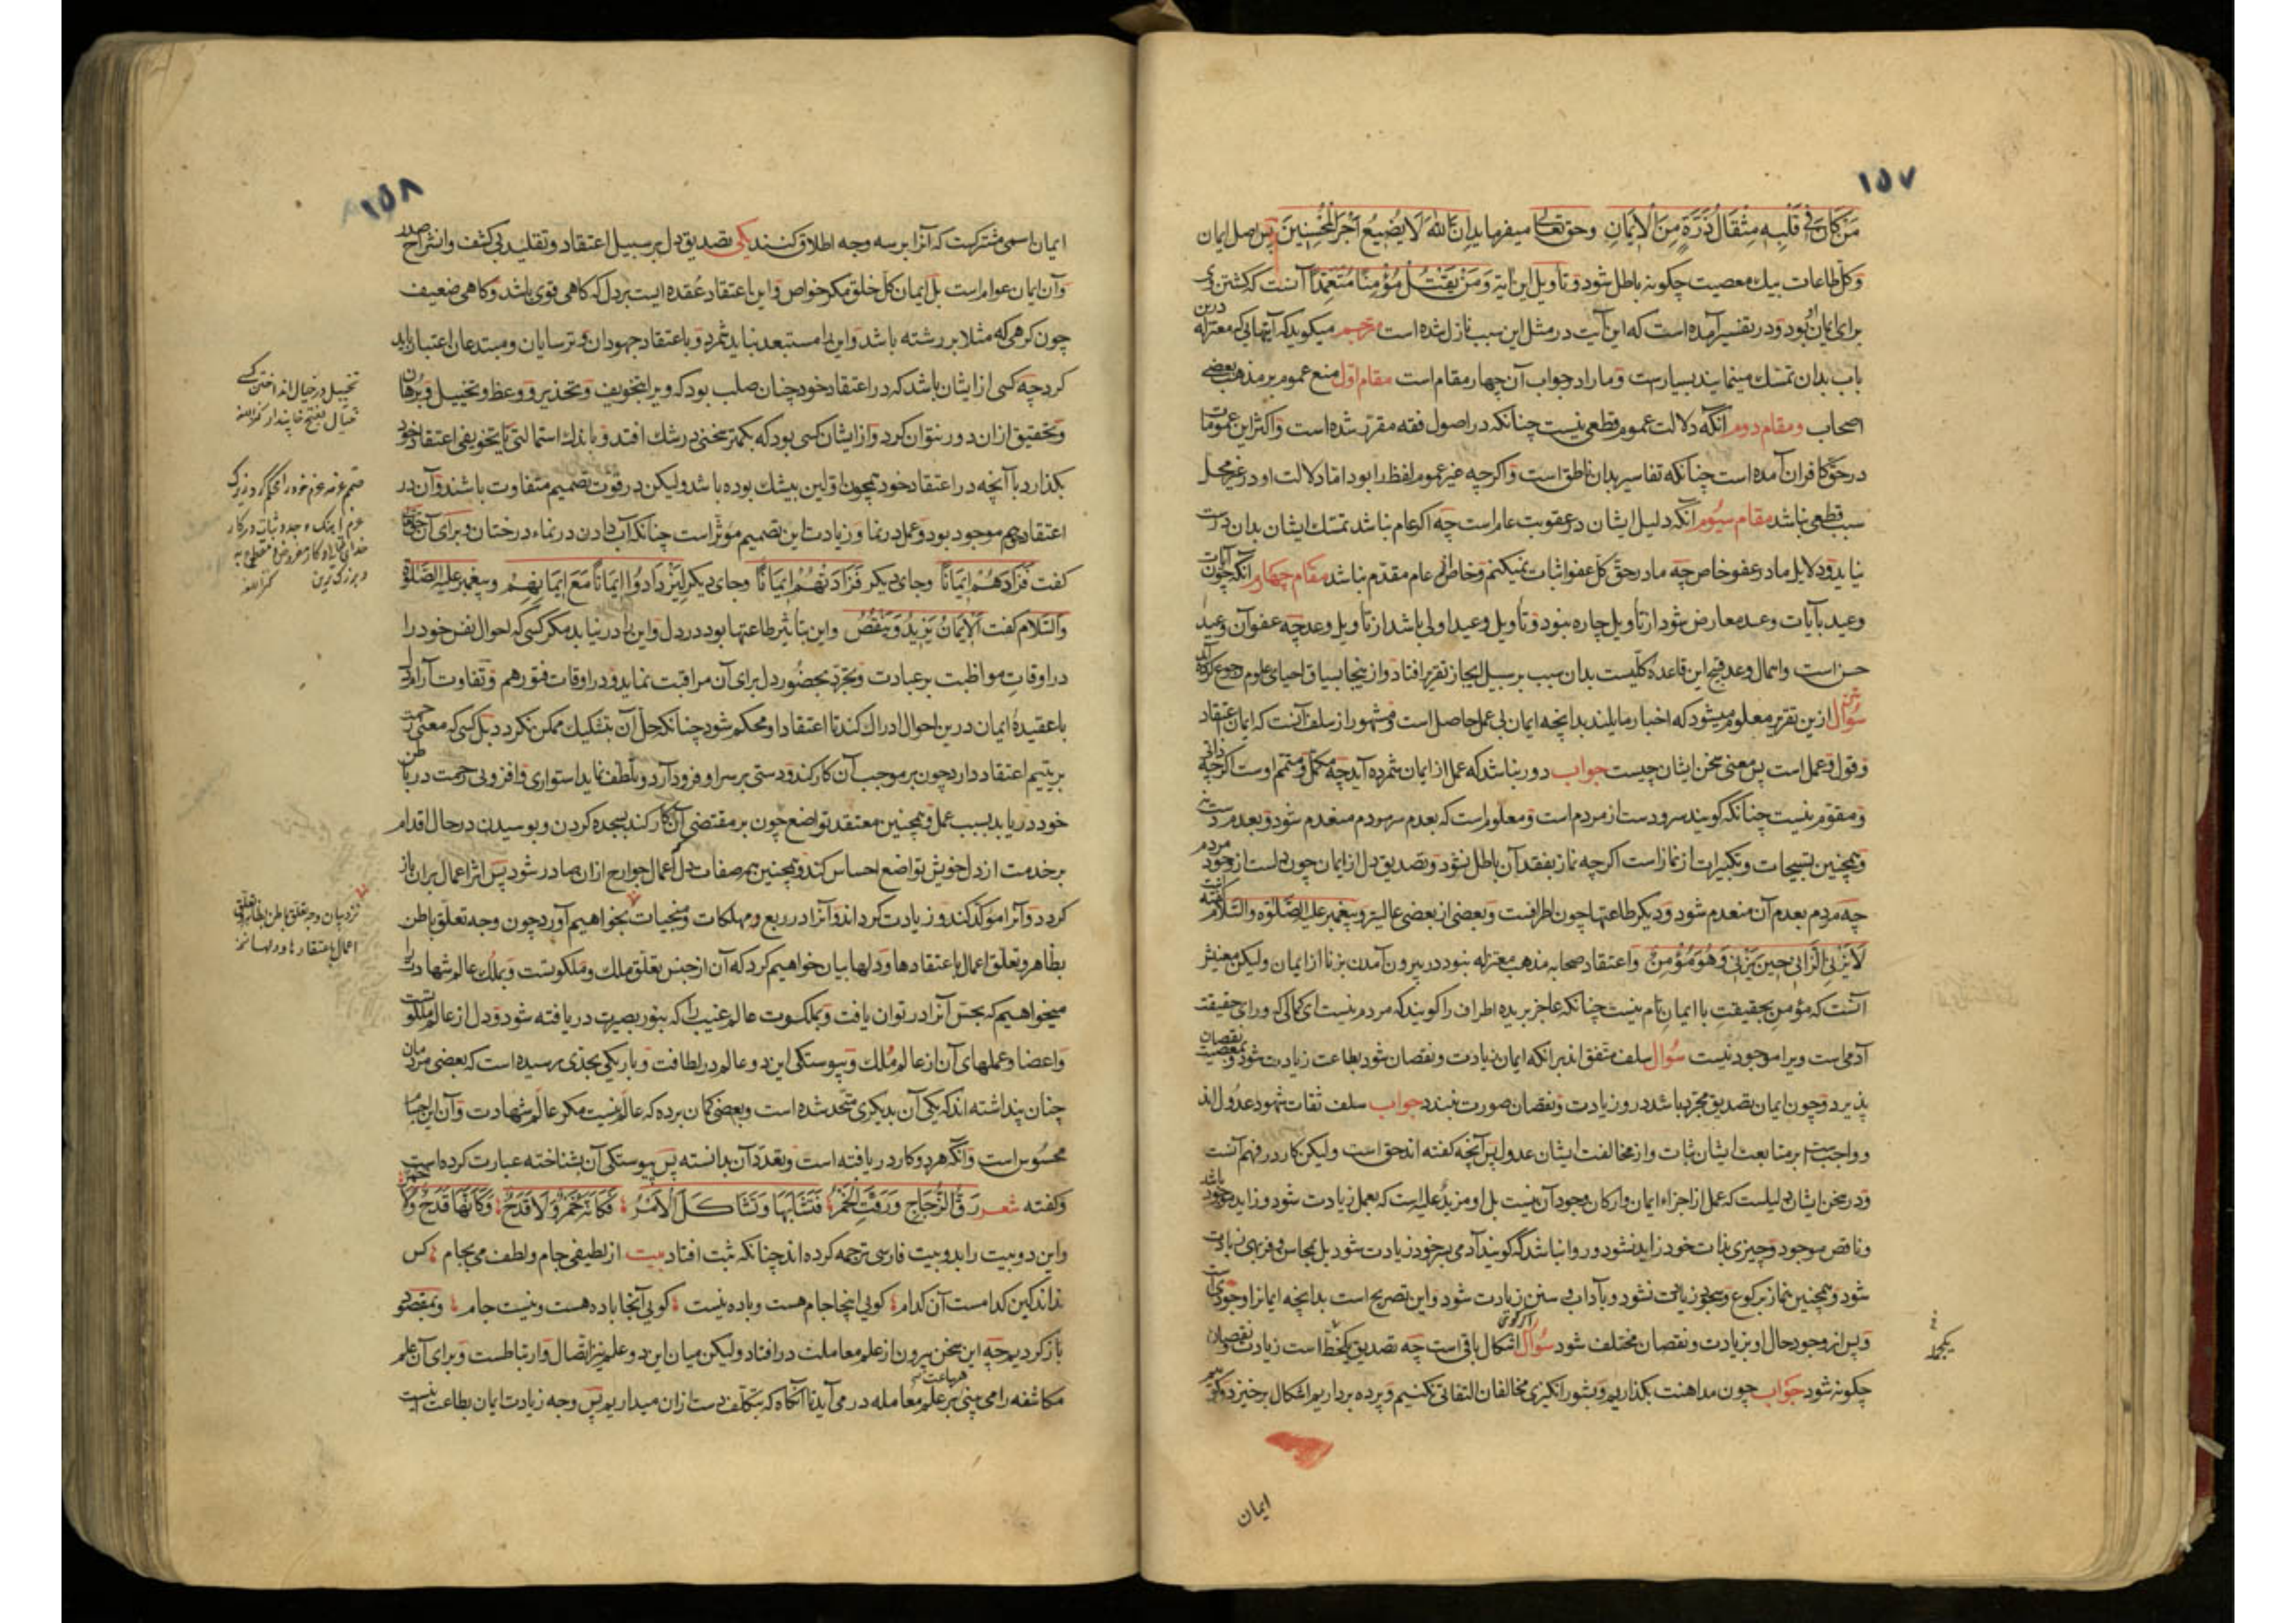 ١٥٧
مَنْ كَانَ فِي قَلْبِهِ مِثْقَالُ ذَرَّةٍ مِنَ الْإِيمَانِ وحق تعالی میفرماید اِنَّ اللهَ لَا يُضِيعُ أَجْرَ الْمُحْسِنِينَ پس اصل ایمان
و کل طاعات بیک معصیت چگونه باطل شود و تأویل این آیه وَمَنْ يَقْتُلْ مُؤْمِنًا مُتَعَمِّدًا آنست که کشتن وی
برای ایمان او بود و در تفسیر آمده است که این آیت در مثل این سبب نازل شده است مترجم میگوید که آیتهایی که معتزله درین
باب بدان تمسک مینمایند بسیارست و ما را در جواب آن چهار مقام است مقام اول منع عموم بر مذهب بعضی
اصحاب و مقام دوم آنکه دلالت عموم قطعی نیست چنانکه در اصول فقه مقرر شده است و اکثر این عمومات
در حق کافران آمده است چنانکه تفاسیر بدان ناطق است و اگرچه غیر عموم لفظ را بود اما دلالت او در غیر محل
سبب قطعی نباشد مقام سیوم آنکه دلیل ایشان در عقوبت عام است چه اگر عام نباشد تمسک ایشان بدان درست
نیاید و دلایل ما در عفو خاص چه ما در حق کل عفو اثبات نمیکنیم و خاص از عام مقدم نباشد مقام چهارم آنکه چون آیات
وعید بآیات وعد معارض شود از تأویل چاره نبود و تأویل وعید اولی باشد از تأویل وعد چه عفو آن وعید
حسن است و اهمال وعد قبیح این قاعده کلیست بدان سبب بر سبیل ایجاز تقریر افتاد و از اینجا بسیاق احیای علوم رجوع کرده آید
سوال ازین تقریر معلوم میشود که اخبار مایلند بدانچه ایمان بی عمل حاصل است و مشهور از سلف آنست که ایمان اعتقاد
و قول و عمل است پس معنی سخن ایشان چیست جواب دور نباشد که عمل از ایمان شمرده آید چه مکمل و متمم اوست اگرچه
و مقوم نیست چنانکه گویند سر و دست از مردم است و معلوم است که بعدم سر مردم منعدم شود و بعدم دست نی
و همچنین تسبیحات و تکبیرات از نماز است اگرچه نماز بفقد آن باطل نشود و تصدیق دل از ایمان چون سر است از وجود مردم
چه مردم بعدم آن منعدم شود و دیگر طاعتها چون اطرافست و بعضی از بعضی عالی‌تر و پیغمبر علیه الصلوة والسلام گفته
لَا يَزْنِي الزَّانِي حِينَ يَزْنِي وَهُوَ مُؤْمِنٌ و اعتقاد صحابه مذهب معتزله نبود در بیرون آمدن بزنا از ایمان ولیکن معنیش
آنست که مؤمن بحقیقت با ایمان تام نیست چنانکه عاجز بریده اطراف را گویند که مردم نیست ای کمالی که ورای حقیقت
آدمی است ویرا موجود نیست سوال سلف متفق اند بر آنکه ایمان زیادت و نقصان شود بطاعت زیادت شود و بمعصیت نقصان
پذیرد و چون ایمان تصدیق مجرد باشد در و زیادت و نقصان صورت نبندد جواب سلف ثقات شهود عدول اند
و واجب است بر متابعت ایشان ثبات و از مخالفت ایشان عدول پس آنچه گفته اند حق است ولیکن کار در فهم آنست
و در سخن ایشان دلیلست که عمل از اجزاء ایمان و ارکان وجود آن نیست بل او مزید علیه است که بعمل زیادت شود و زاید موجود باشد
و ناقص موجود و چیزی بذات خود زاید نشود و روا نباشد که گویند آدمی بسر خود زیادت شود بل بمحاسن و فربهی زیادت
شود و همچنین نماز برکوع و سجود زیادت نشود و بآداب و سنن زیادت شود و این تصریح است بدانچه ایمان را وجودی است
و پس از وجود حال او بزیادت و نقصان مختلف شود سوال اگر گویی اشکال باقی است چه تصدیق یکخط است زیادت و نقصان
چگونه شود جواب چون مداهنت بگذاریم و بشور انگیزی مخالفان التفاتی نکنیم و پرده برداریم اشکال برخیزد و گوییم
ایمان
١٥٨
ایمان اسمی مشترکست که آنرا بر سه وجه اطلاق کنند یکی تصدیق دل بر سبیل اعتقاد و تقلید بی کشف و انشراح صدر
و آن ایمان عوام است بل ایمان کل خلق مگر خواص و این اعتقاد عقده ایست بر دل که گاهی قوی باشد و گاهی ضعیف
چون گرهی که مثلا بر رشته باشد و این را مستبعد نباید شمرد و باعتقاد جهودان و ترسایان و مبتدعان اعتبار باید
کرد چه کسی از ایشان باشد که در اعتقاد خود چنان صلب بود که ویرا بتخویف و تحذیر و وعظ و تخییل و برهان
و تحقیق از ان دور نتوان کرد و از ایشان کسی بود که بکمتر سخنی در شک افتد و باندک استمالتی یا تخویفی اعتقاد خود
بگذارد با آنچه در اعتقاد خود همچون اولین بیشک بوده باشد ولیکن در قوت تصمیم متفاوت باشند و آن در
اعتقاد حق هم موجود بود و عمل در نما و زیادت این تصمیم مؤثر است چنانکه آب دادن در نماء درختان و برای آن حق تعالی
گفت فَزَادَهُمْ إِيمَانًا و جای دیگر فَزَادَتْهُمْ إِيمَانًا و جای دیگر لِيَزْدَادُوا إِيمَانًا مَعَ إِيمَانِهِمْ و پیغمبر علیه الصلوة
والسلام گفت اَلْإِيمَانُ يَزِيدُ وَيَنْقُصُ و این بتأثیر طاعتها بود در دل و این را درنیابد مگر کسی که احوال نفس خود را
در اوقات مواظبت بر عبادت و تجرد بحضور دل برای آن مراقبت نماید و در اوقات فتور هم و تفاوت آرام را
با عقیدهٔ ایمان درین احوال ادراک کند تا اعتقاد او محکم شود چنانکه حل آن بتشکیک ممکن نگردد بل کسی که معنی رحمت
بر یتیم اعتقاد دارد چون بر موجب آن کار کند و دستی بر سر او فرود آرد و تلطف نماید استواری و افزونی رحمت در باطن
خود دریابد بسبب عمل و همچنین معتقد تواضع چون بر مقتضی آن کار کند بسجده کردن و بوسیدن در حال اقدام
بر خدمت از دل خویش تواضع احساس کند و همچنین همه صفات دل اعمال جوارح از ان صادر شود پس اثر اعمال بران باز
گردد و آنرا مؤکد کند و زیادت گرداند و آنرا در ربع مهلکات و منجیات بخواهیم آورد چون وجه تعلق باطن
بظاهر و تعلق اعمال باعتقادها و دلها بیان خواهیم کرد که آن از جنس تعلق ملک و ملکوتست و بملک عالم شهادت را
میخواهیم که بحس آنرا در توان یافت و بملکوت عالم غیب را که بنور بصیرت دریافته شود و دل از عالم ملکوتست
و اعضا و عملهای آن از عالم ملک و پیوستگی این دو عالم در لطافت و باریکی بحدی رسیده است که بعضی مردمان
چنان پنداشته اند که یکی آن بدیگری متحد شده است و بعضی گمان برده که عالم نیست مگر عالم شهادت و آن این اجسام
محسوس است و آنکه هر دو کار دریافته است و تعدد آن بدانسته پس پیوستگی آن بشناخته عبارت کرده است
و گفته شعر رَقَّ الزُّجَاجُ وَرَقَّتِ الْخَمْرُ فَتَشَابَهَا وَتَشَاكَلَ الْأَمْرُ فَكَأَنَّهُ خَمْرٌ وَلَا قَدَحٌ وَكَأَنَّهَا قَدَحٌ وَلَا خَمْرُ
و این دو بیت را بدو بیت فارسی ترجمه کرده اند چنانکه ثبت افتاد بیت از لطیفی جام و لطف می بجام کس
نداند کین کدامست آن کدام گویی اینجا جام هست و باده نیست گویی آنجا باده هست و نیست جام و بمقصود
باز گردیم چه این سخن بیرون از علم معاملت در افتاد ولیکن میان این دو علم نیز اتصال و ارتباطست و برای آن علم
مکاشفه را می بینی هر ساعت بر علم معامله در می آید تا آنگاه که بتکلف دست ازان میداریم پس وجه زیادت ایمان بطاعت اینست
تخییل در خیال انداختن کسی
خیال بفتح خا پندار کنز اللغه